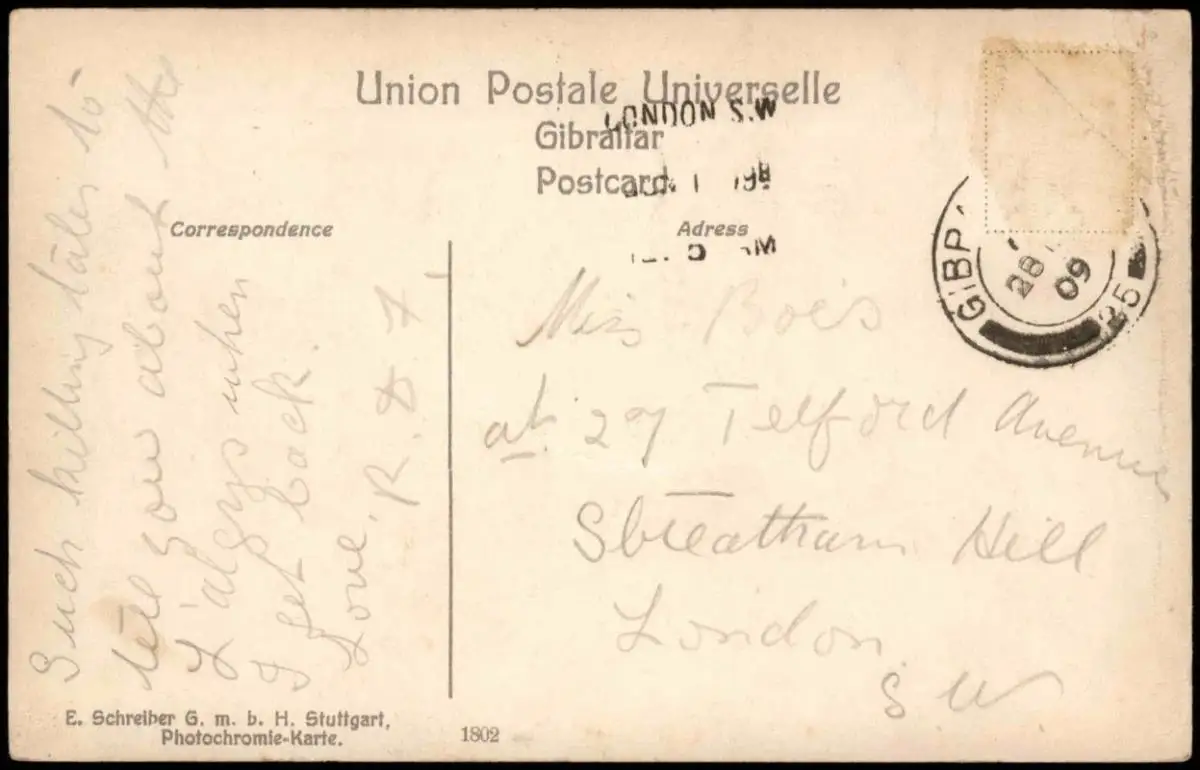 Union Postale Universelle
Gibraltar
Postcard
LONDON S.W
Correspondence
Adress
GIBR
28
09
25
Such killing tales to
tell you about the
when
I get back.
Love. R.
Miss Bois
at 29 Telford Avenue
Streatham Hill
London
S W
E. Schreiber G. m. b. H. Stuttgart,
Photochromie-Karte.
1802